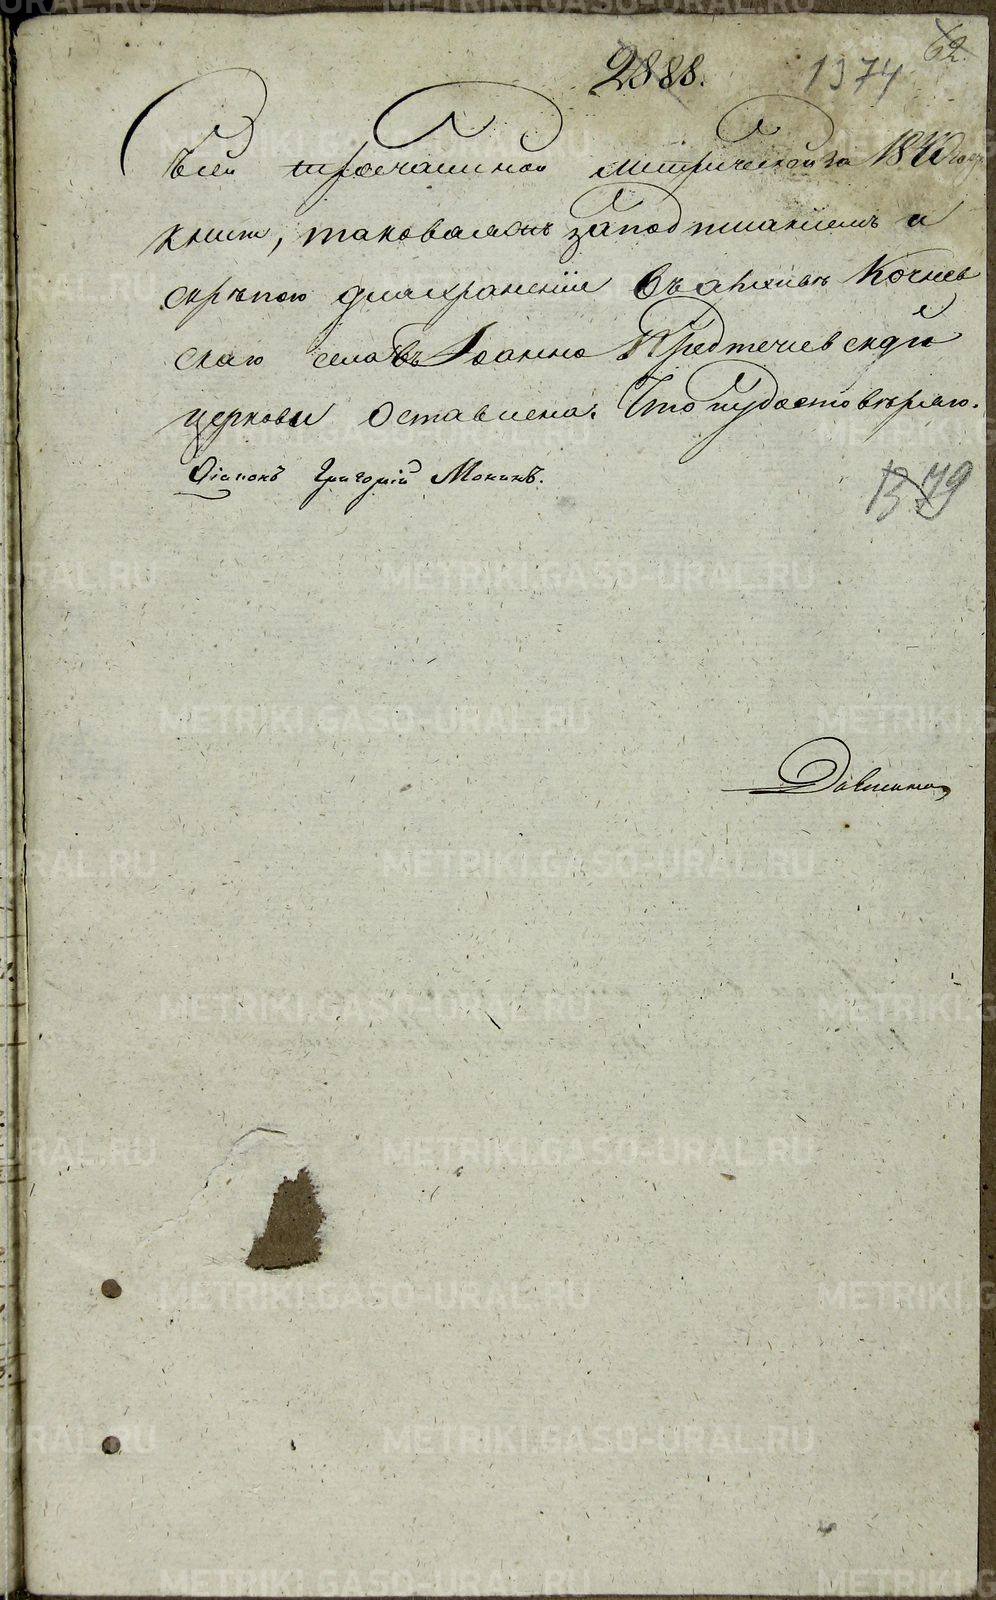 62
2888. 1974
Сей троечастной метрической за 1840 годъ
книги, таковая жъ за подписаніемъ и
скрѣпою для храненія въ архивѣ Кочнев
скаго села въ Іоанно Предтечиевской
церкови оставлена. Что и удостовѣряю.
Діаконъ Григорій Мокинъ.
1379
METRIKI.GASO-URAL.RU